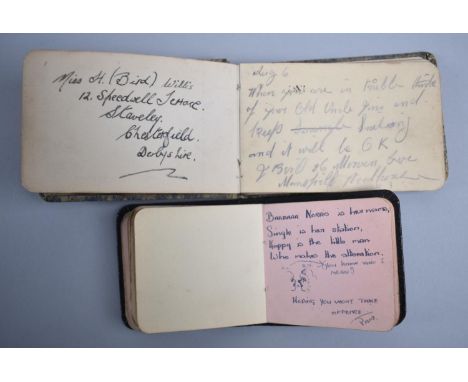 Miss H. (Bird) Willis
12. Speedwell Terrace.
Staveley.
Chesterfield.
Derbyshire.
Aug 6
When you are in trouble think
of your Old Uncle Jim and
keep smiling
and it will be O.K.
J Bird 26
Mansfield
BARBARA is her name,
Single is her station,
Happy is the little man
Who makes the alteration.
(YOU KNOW WHO I
MEAN)
HOPING YOU WON'T TAKE
OFFENCE